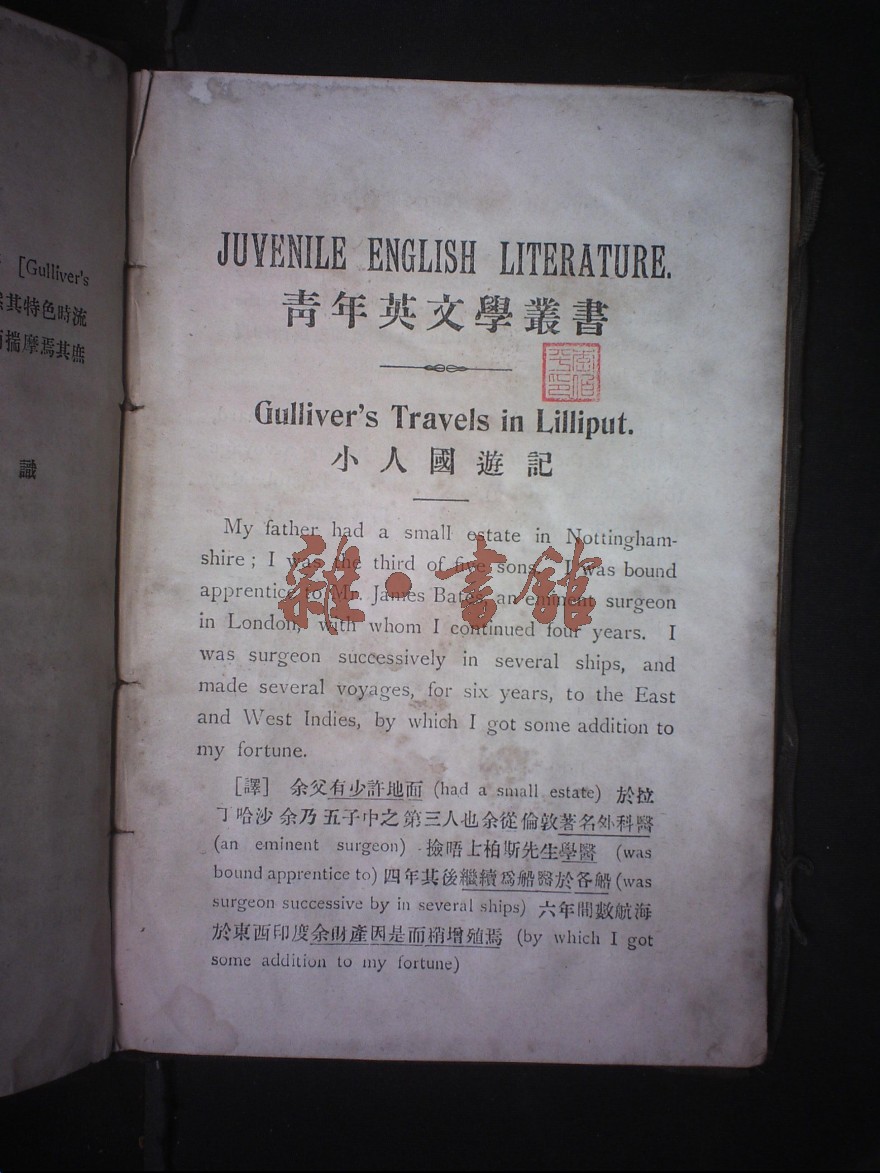 [Gulliver's
其特色時流
揣摩焉其
識
JUVENILE ENGLISH LITERATURE.
靑年英文學叢書
Gulliver's Travels in Lilliput.
小人國遊記
My father had a small estate in Nottingham-
shire; I was the third of five sons. I was bound
apprentice to Mr. James Bates, an eminent surgeon
in London, with whom I continued four years. I
was surgeon successively in several ships, and
made several voyages, for six years, to the East
and West Indies, by which I got some addition to
my fortune.
雜·書舘
[譯] 余父有少許地面 (had a small estate) 於拉
丁哈沙 余乃五子中之第三人也余從倫敦著名外科醫
(an eminent surgeon) 撿唔上柏斯先生學醫 (was
bound apprentice to) 四年其後繼續爲船醫於各船 (was
surgeon successive by in several ships) 六年間數航海
於東西印度余財產因是而稍增殖焉 (by which I got
some addition to my fortune)